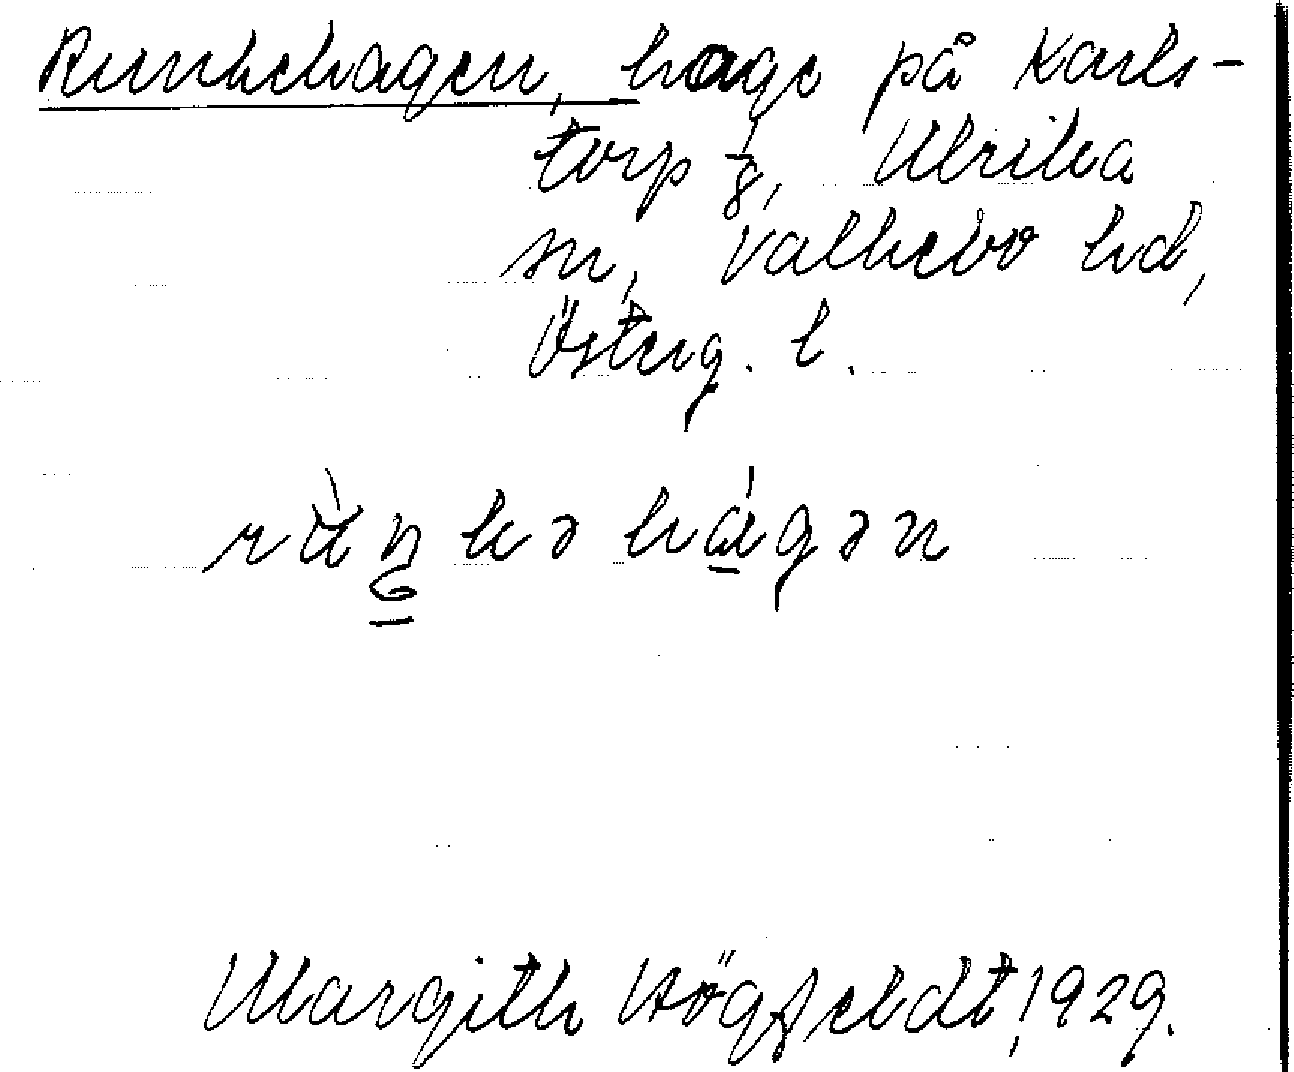 Runkehagen, hage på Karls-
torp 1/8, Ulrika
sn, Valkebo hd,
Österg. l.
rùŋkə hágən
Margith Högfeldt, 1929.